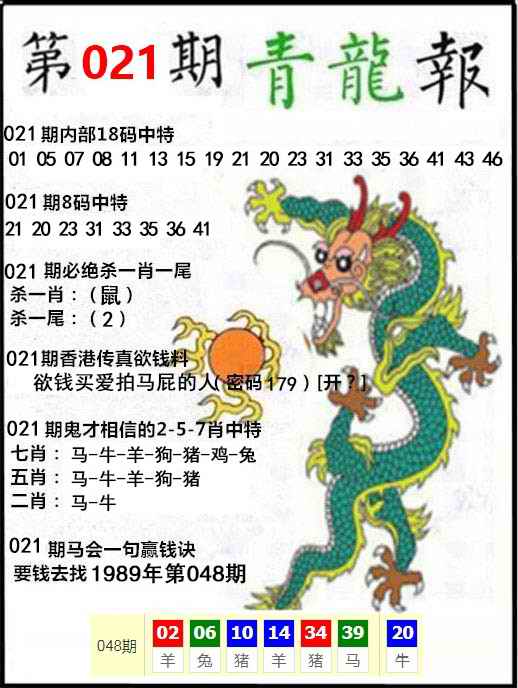 第021期青龍報
021期内部18码中特
01 05 07 08 11 13 15 19 21 20 23 31 33 35 36 41 43 46
021期8码中特
21 20 23 31 33 35 36 41
021期必绝杀一肖一尾
杀一肖：（鼠）
杀一尾：（2）
021期香港传真欲钱料
欲钱买爱拍马屁的人（密码179）[开？]
021期鬼才相信的2-5-7肖中特
七肖：马-牛-羊-狗-猪-鸡-兔
五肖：马-牛-羊-狗-猪
二肖：马-牛
021期马会一句赢钱诀
要钱去找1989年第048期
048期 02 06 10 14 34 39 20
羊 兔 猪 羊 猪 马 牛